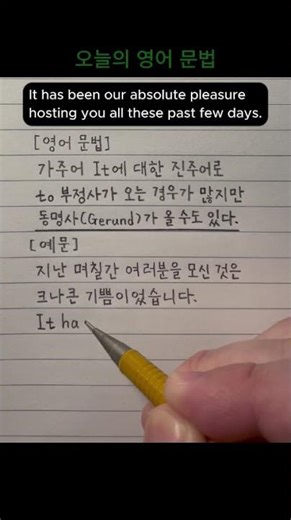 오늘의 영어 문법
It has been our absolute pleasure
hosting you all these past few days.
[영어 문법]
가주어 It에 대한 진주어로
to 부정사가 오는 경우가 많지만
동명사(Gerund)가 올 수도 있다.
[예문]
지난 며칠간 여러분을 모신 것은
크나큰 기쁨이었습니다.
It ha